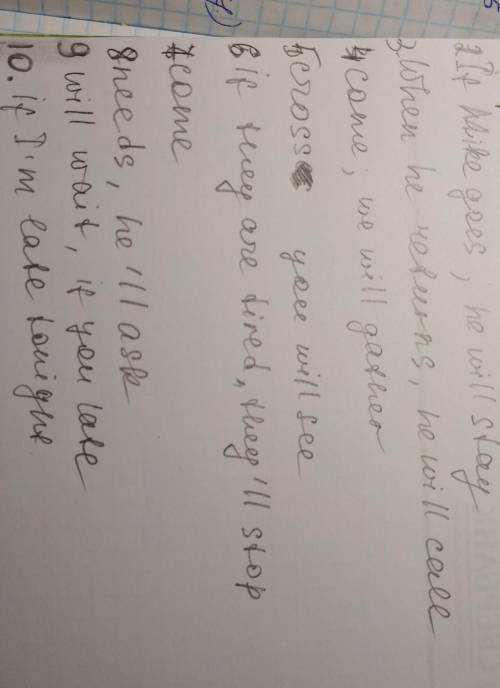 2 If Mike goes, he will stay
3 When he returns, he will call
4 come, we will gather
5 cross you will see
6 if they are tired, they'll stop
7 come
8 needs, he'll ask
9 will wait, if you late
10. if I'm late tonight